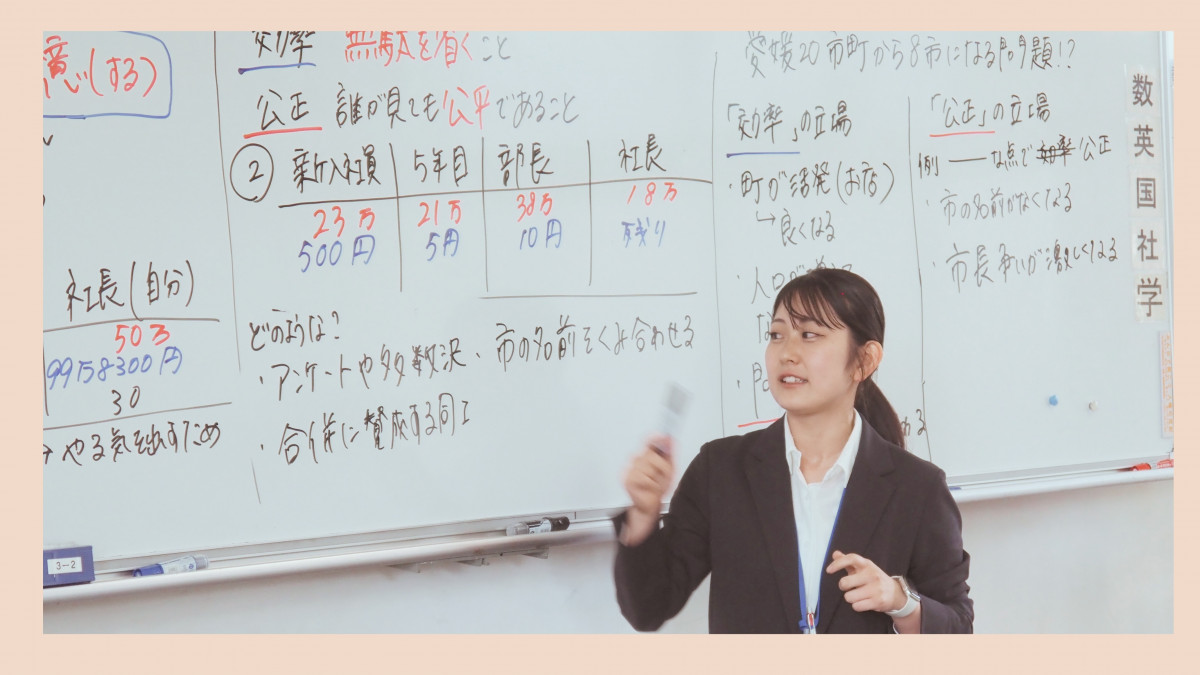 意(する)
社長(自分)
50万
9958300円
30
→やる気を出すため
効率 無駄を省くこと
公正 誰が見ても公平であること
② 新入社員 5年目 部長 社長
23万 21万 38万 18万
500円 5円 10円 残り
どのような?
・アンケートや多数決
・合併に賛成する同士
・市の名前をくみ合わせる
愛媛20市町から8市になる問題!?
「効率」の立場
・町が活発(お店)
↳良くなる
・人口が
「公正」の立場
例 ――な点で 公正
・市の名前がなくなる
・市長争いが激しくなる
める
数
英
国
社
学
3-2